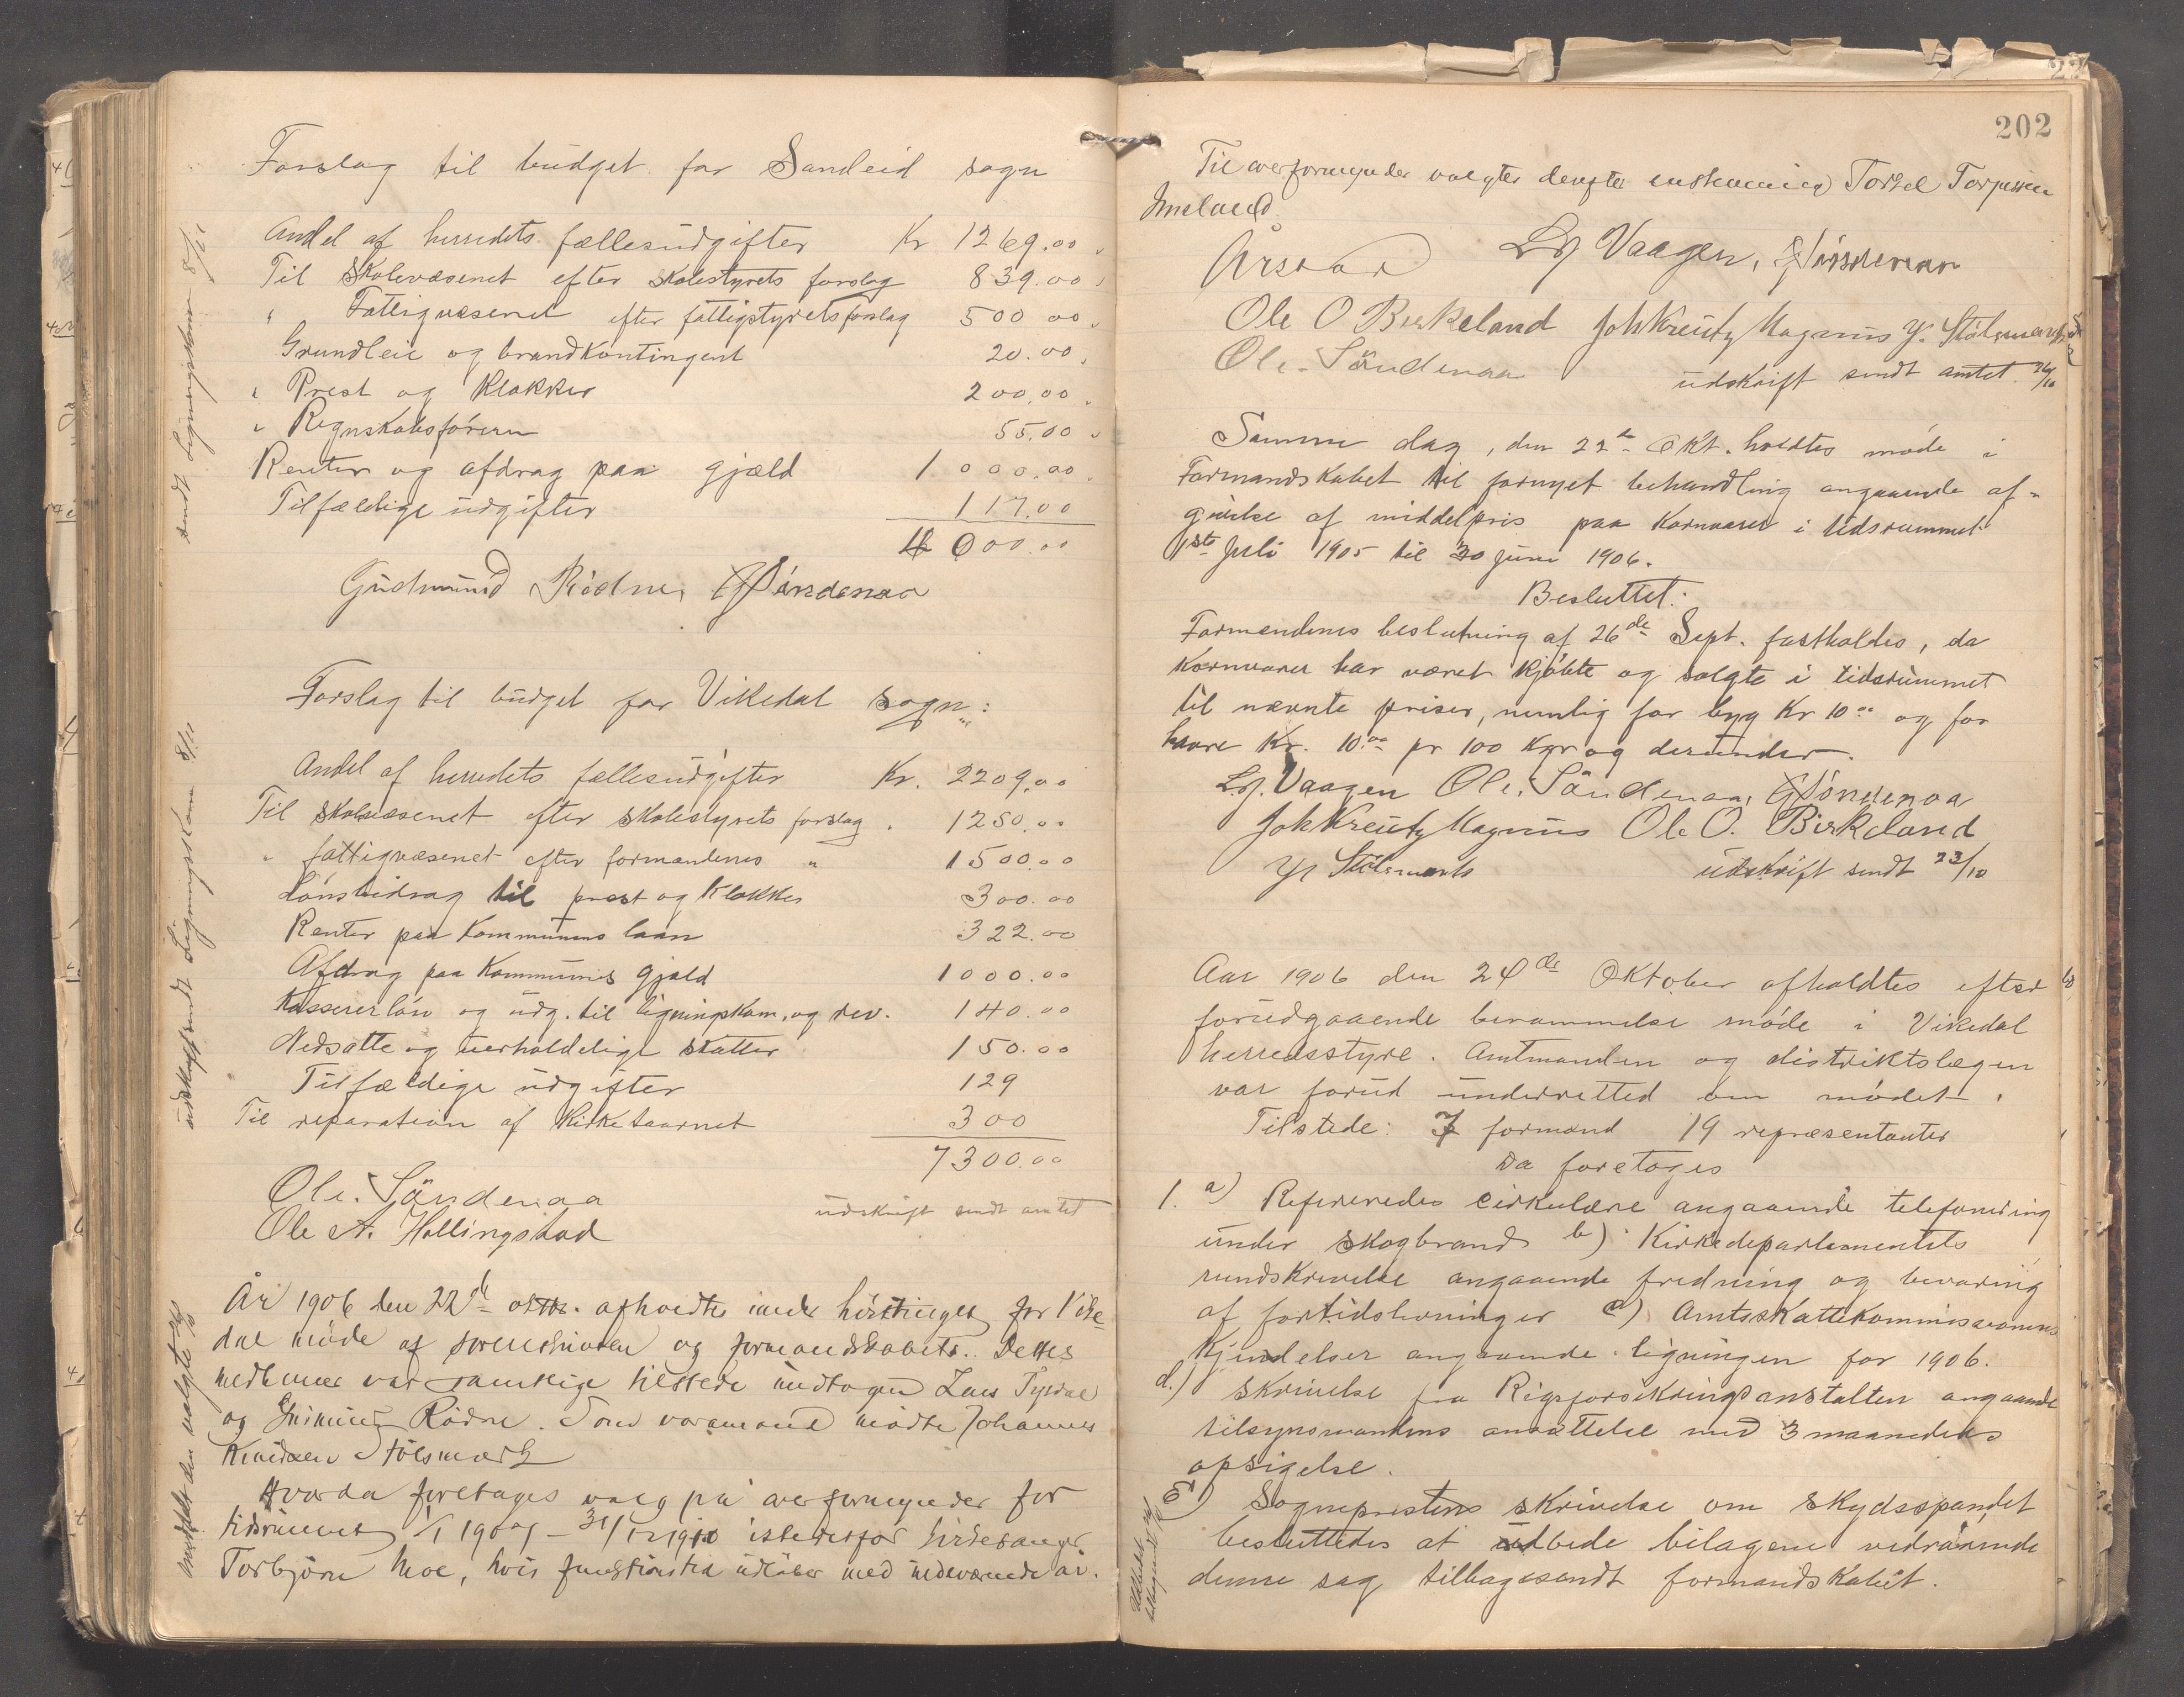 Forslag til budget for Sandeid sogn
Andel af herredets fællesudgifter Kr 1269.00
Til Skolevæsenet efter skolestyrets forslag 839.00
" Fattigvæsenet efter fattigstyrets forslag 500 00
Grundleie og brandkontingent 20.00
" Prest og Klokker 200.00
" Regnskabsføreren 55.00
Renter og afdrag paa gjæld 1000.00
Tilfældige udgifter 117.00
4000.00
Gudmund Rødne, Søndenaa
Forslag til budget for Vikedal sogn:
Andel af herredets fællesudgifter Kr. 2209.00
Til skolevæsenet efter skolestyrets forslag 1250.00
" fattigvæsenet efter formændenes " 1500.00
Lønsbidrag til prest og klokker 300.00
Renter paa Kommunens laan 322.00
Afdrag paa Kommunes gjæld 1000.00
Kassererløn og udg. til ligningskom. og rev. 140.00
Nedsatte og uerholdelige skatter 150.00
Tilfældige udgifter 129
Til reparation af Kirketaarnet 300
7300.00
Ole. Søndenaa
udskrift sendt amtet
Ole A. Hollingstad
År 1906 den 22de oktbr. afholdtes under høsttinget for Vike-
dal møde af sorenskriveren og formandskabet. Dettes
medlemmer var samtlige tilstede undtagen Lars Tysdal
og Rødne. Som varamand mødte Johannes
Knudsen Stølsmark
Hvorda foretages valg på overformynder for
tidsrummet 1/1 1907 - 31/12 1910 istedetfor
Torbjørn Moe, hvis funktionstid udløber med indeværende år.
sendt Ligningskom 8/11
udskrift sendt Ligningskom 8/11
den valgte
202
Til overformynder valgtes derefter enstemmig Torkel Torjussen
Imsland.
L J Vaagen, Søndenaa
Ole O Birkeland Joh Kreutz Magnus Stølsmark
Ole. Søndenaa udskrift sendt amtet 24/10
Samme dag, den 22de Okt. holdtes møde i
Formandskabet til fornyet behandling angaaende af-
givelse af middelpris paa Kornvarer i tidsrummet
1ste Juli 1905 til 30 Juni 1906.
Besluttet:
Formændenes beslutning af 26de Sept. fastholdes, da
Kornvarer har været kjøbte og solgte i tidsrummet
til nævnte priser, nemlig for byg Kr 10.00 og for
havre Kr. 10.00 pr 100 Kgr og derunder.
L J. Vaagen Ole. Søndenaa, Søndenaa
Joh Kreutz Magnus Ole O. Birkeland
Stølsmark udskrift sendt 23/10
Aar 1906 den 24de Oktober afholdtes efter
forudgaaende berammelse møde i Vikedal
herredsstyre. Amtmanden og distriktslægen
var forud underretted om mødet.
Tilstede: 7 formænd 19 repræsentanter
Da foretoges
1. a) Refereredes cirkulære angaaende telefonering
under skogbrand b) Kirkedepartementets
rundskrivelse angaaende fredning og bevaring
af fortidslevninger c) Amtsskattekommissionens
kjendelser angaaende ligningen for 1906.
d.) Skrivelse fra Rigsforsikringsanstalten angaaende
tilsynsmandens ansættelse med 3 maaneders
opsigelse.
e) Sogneprestens skrivelse om skydsspandet
besluttedes at udbede bilagene vedrørende
denne sag tilbagesendt formandskabet.